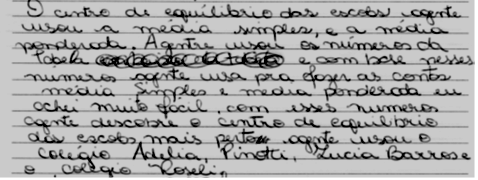 O centro de equilibrio das escolas agente
usou a média simples, e a média
ponderada. Agentre usou os numeros da
tabela e com base nesses
numeros agente usa pra fazer as contas
média simples e media ponderada eu
achei muito fácil, com esses numeros
agente descobre o centro de equilibrio
das escolas mais perto agente usou o
colégio Adelia, Pinotti, Lucia Barrose
o colégio Roseli,,